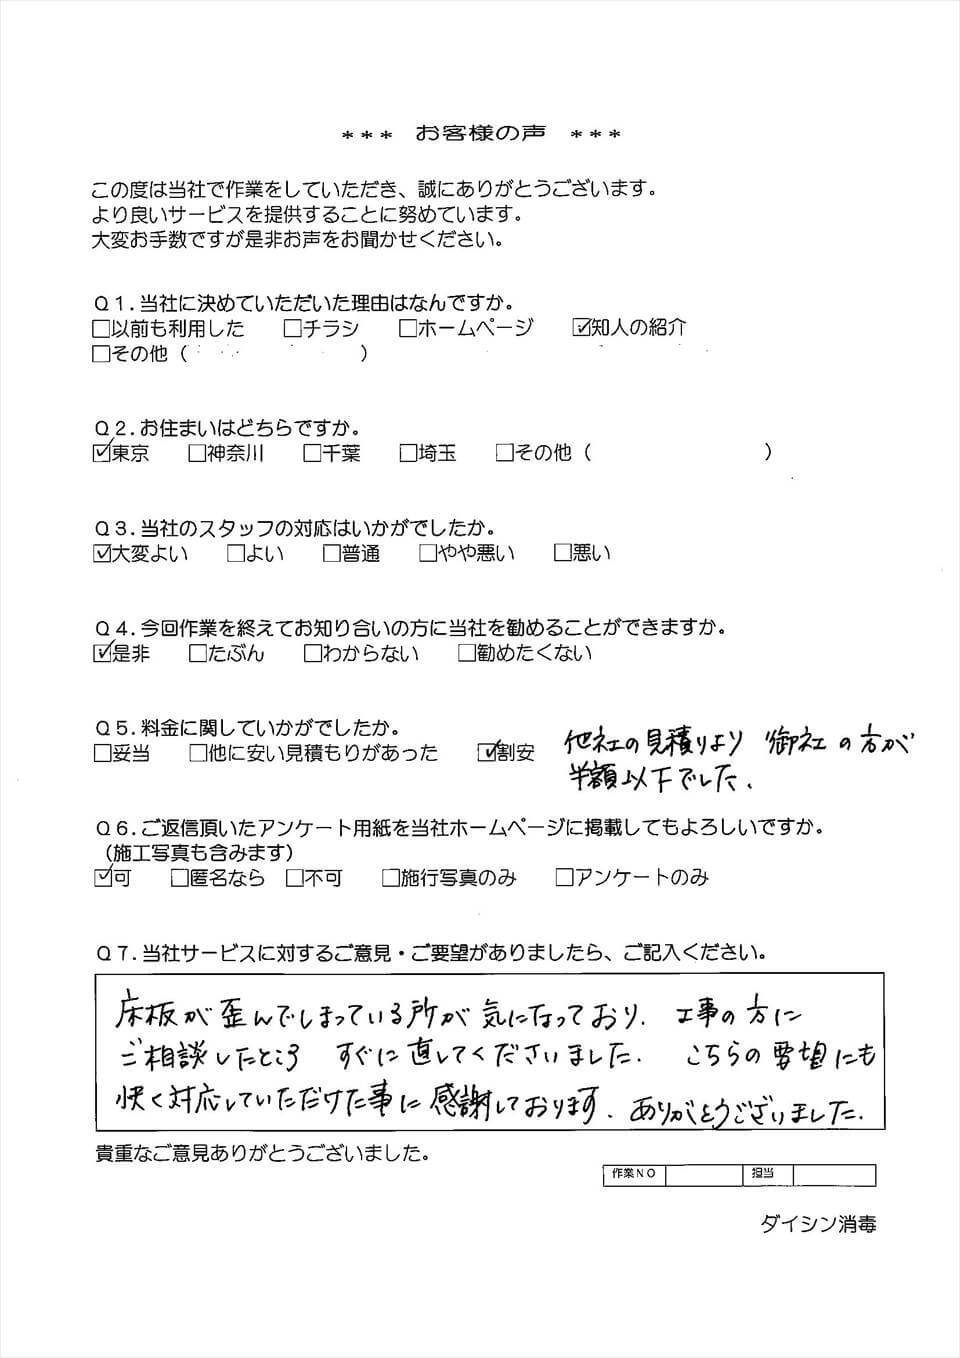 *** お客様の声 ***
この度は当社で作業をしていただき、誠にありがとうございます。
より良いサービスを提供することに努めています。
大変お手数ですが是非お声をお聞かせください。
Q1.当社に決めていただいた理由はなんですか。
□以前も利用した □チラシ □ホームページ ☑知人の紹介
□その他（ ）
Q2.お住まいはどちらですか。
☑東京 □神奈川 □千葉 □埼玉 □その他（ ）
Q3.当社のスタッフの対応はいかがでしたか。
☑大変よい □よい □普通 □やや悪い □悪い
Q4.今回作業を終えてお知り合いの方に当社を勧めることができますか。
☑是非 □たぶん □わからない □勧めたくない
Q5.料金に関していかがでしたか。
□妥当 □他に安い見積もりがあった ☑割安 他社の見積りより 御社の方が
半額以下でした.
Q6.ご返信頂いたアンケート用紙を当社ホームページに掲載してもよろしいですか。
（施工写真も含みます）
☑可 □匿名なら □不可 □施行写真のみ □アンケートのみ
Q7.当社サービスに対するご意見・ご要望がありましたら、ご記入ください。
床板が歪んでしまっている所が気になっており. 工事の方に
ご相談したところ すぐに直してくださいました. こちらの要望にも
快く対応していただけた事に感謝しております. ありがとうございました.
貴重なご意見ありがとうございました。
作業NO 担当
ダイシン消毒